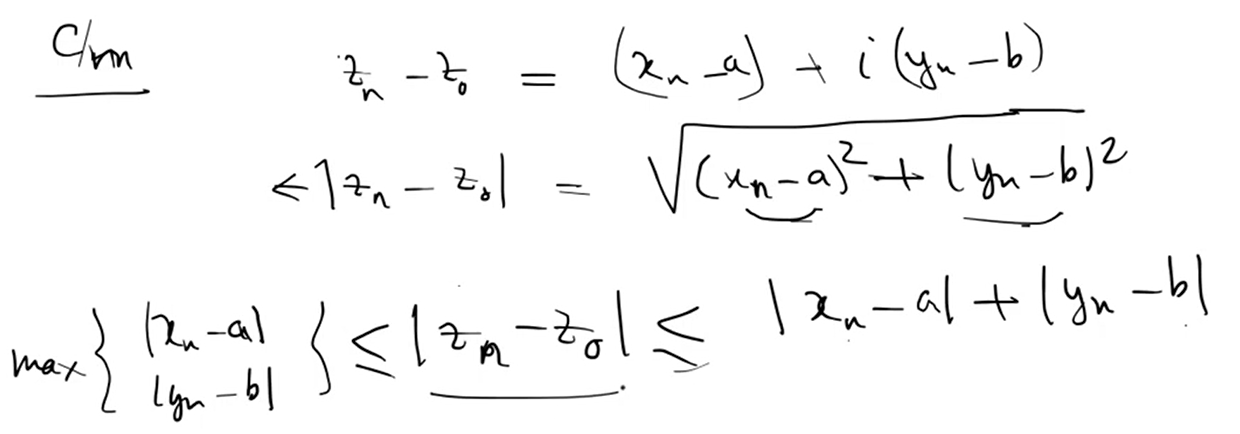 z_n - z_0 = (x_n - a) + i (y_n - b)
<|z_n - z_0| = √((x_n - a)^2 + (y_n - b)^2)
max { |x_n - a| |y_n - b| } ≤ |z_n - z_0| ≤ |x_n - a| + |y_n - b|